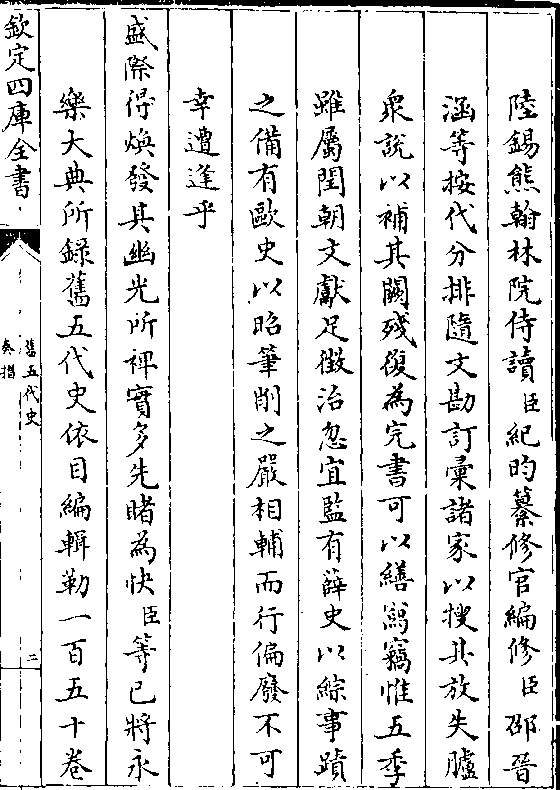 陸錫熊翰林院侍讀臣紀昀纂修官編修臣邵晉
涵等按代分排隨文勘訂彙諸家以搜其放失臚
衆說以補其闕殘復為完書可以繕寫竊惟五季
雖屬閏朝文獻足徴治忽宜監有薛史以綜事蹟
之備有歐史以昭筆削之嚴相輔而行偏廢不可
幸遭逢乎
盛際得煥發其幽光所裨實多先睹為快臣等已將永
樂大典所録舊五代史依目編輯勒一百五十卷
欽定四庫全書
舊五代史
奏摺
二